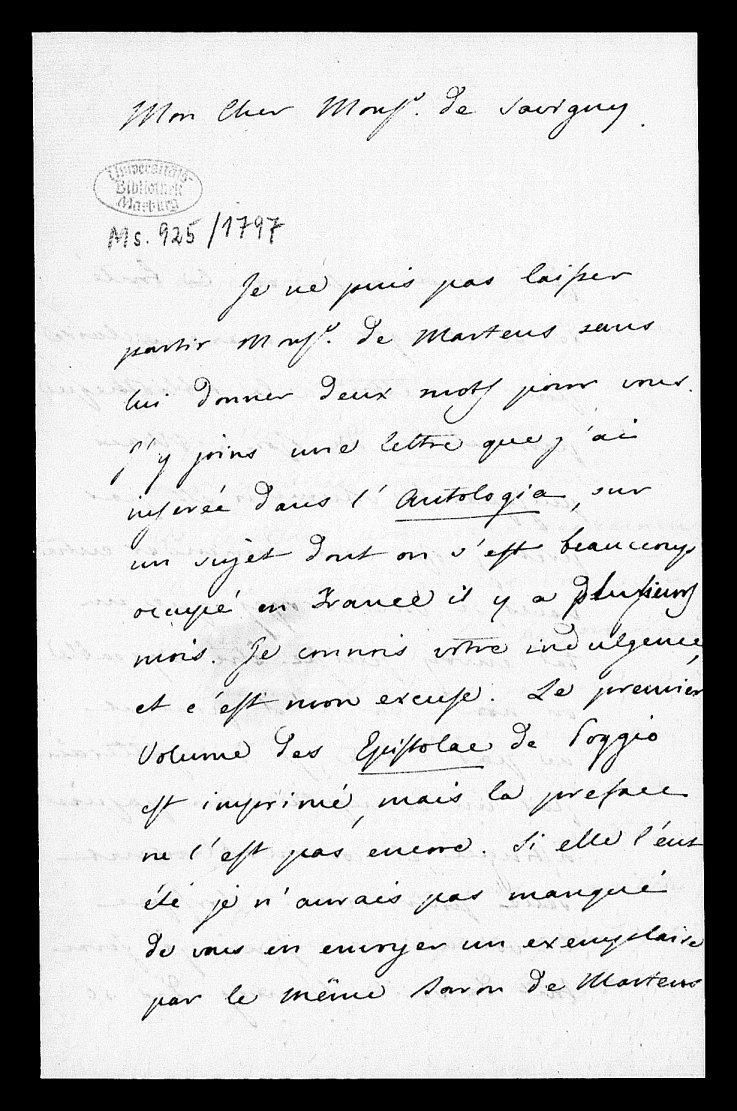 Mon Cher Monsr. de Savigny.
Universitäts-
Bibliothek
Marburg
Ms. 925/1797
Je ne puis pas laisser
partir Monsr. de Martens sans
lui donner deux mots pour vous.
J'y joins une lettre que j'ai
inserée dans l'Antologia, sur
un sujet dont on s'est beaucoup
ocupé en France il y a plusieurs
mois. Je connois votre indulgence,
et c'est mon excuse. Le premier
Volume des Epistolae de Poggio
est imprimé, mais la preface
ne l'est pas encore. Si elle l'eut
été je n'aurais pas manqué
de vous en envoyer un exemplaire
par le même Baron de Martens